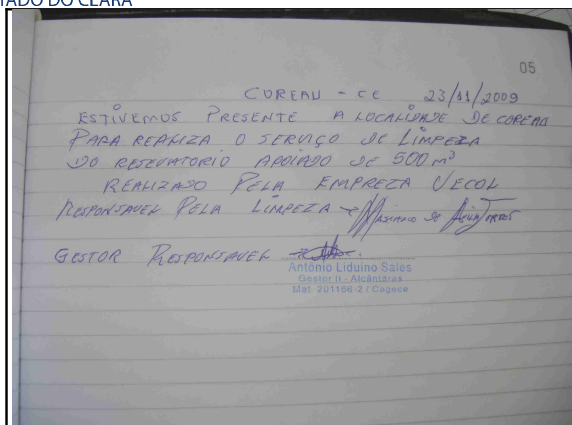 TADO DO CEARÁ
05
COREAU - CE 23/11/2009
ESTIVEMOS PRESENTE A LOCALIDADE DE COREAU
PARA REALIZA O SERVIÇO DE LIMPEZA
DO RESEVATORIO APOIADO DE 500 m³
REALIZADO PELA EMPREZA VECOL
RESPONSAVEL PELA LIMPEZA
GESTOR RESPONSAVEL
Antônio Liduino Sales
Gestor II - Alcântaras
Mat. 201166-2 / Cagece